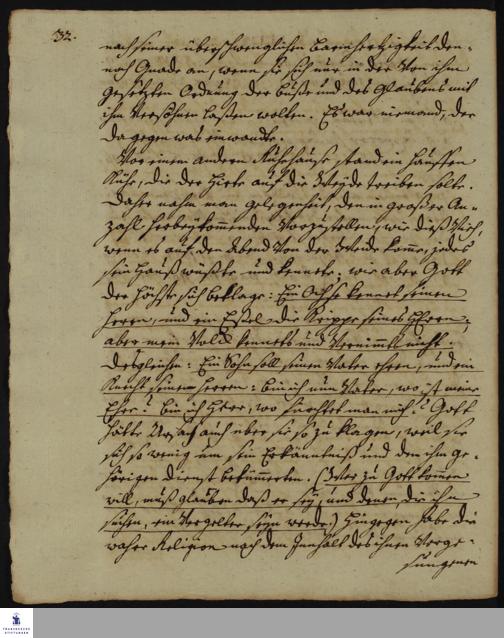 32.
nach seiner überschwenglichen Barmhertzigkeit den-
noch Gnade an, wenn sie sich nur in der von ihm
gesetzten Ordnung der Buße und des Glaubens mit
ihm versöhnen laßen wolten. Es war niemand, der
dagegen was einwandte.
Vor einem andern Ruhehause stand ein Hauffen
Kühe, die der Hirte auf die Weyde treiben solte.
Daher nahm man gelegenheit, den in großer An-
zahl herbeykommenden vorzustellen, wie dieß Vieh,
wenn es auf den Abend von der Weide komme, jedes
sein Hauß wüßte und kennete; wie aber Gott
der Höchste sich beklage: Ein Ochse kennet seinen
Herrn, und ein Esel die Krippe seines HErrn;
aber mein Volck kennets und vernimmts nicht.
Desgleichen: Ein Sohn soll seinen Vater ehren, und ein
Knecht seinen Herrn: bin ich nun Vater, wo ist meine
Ehre? bin ich HErr, wo fürchtet man mich? Gott
hätte Ursach auch über sie so zu klagen, weil sie
sich so wenig um sein Erkäntniß und den ihm ge-
hörigen Dienst bekümmerten. (Wer zu Gott kommen
will, muß glauben daß er sey, und denen, die ihn
suchen, ein Vergelter seyn werde.) Hingegen habe die
wahre Religion nach dem Innhalt des ihnen vorge-
sungenen
FRANCKESCHE
STIFTUNGEN